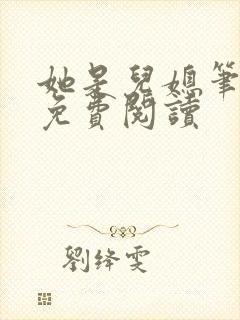 她是兒媳筆
免費閱讀
劉绛雯